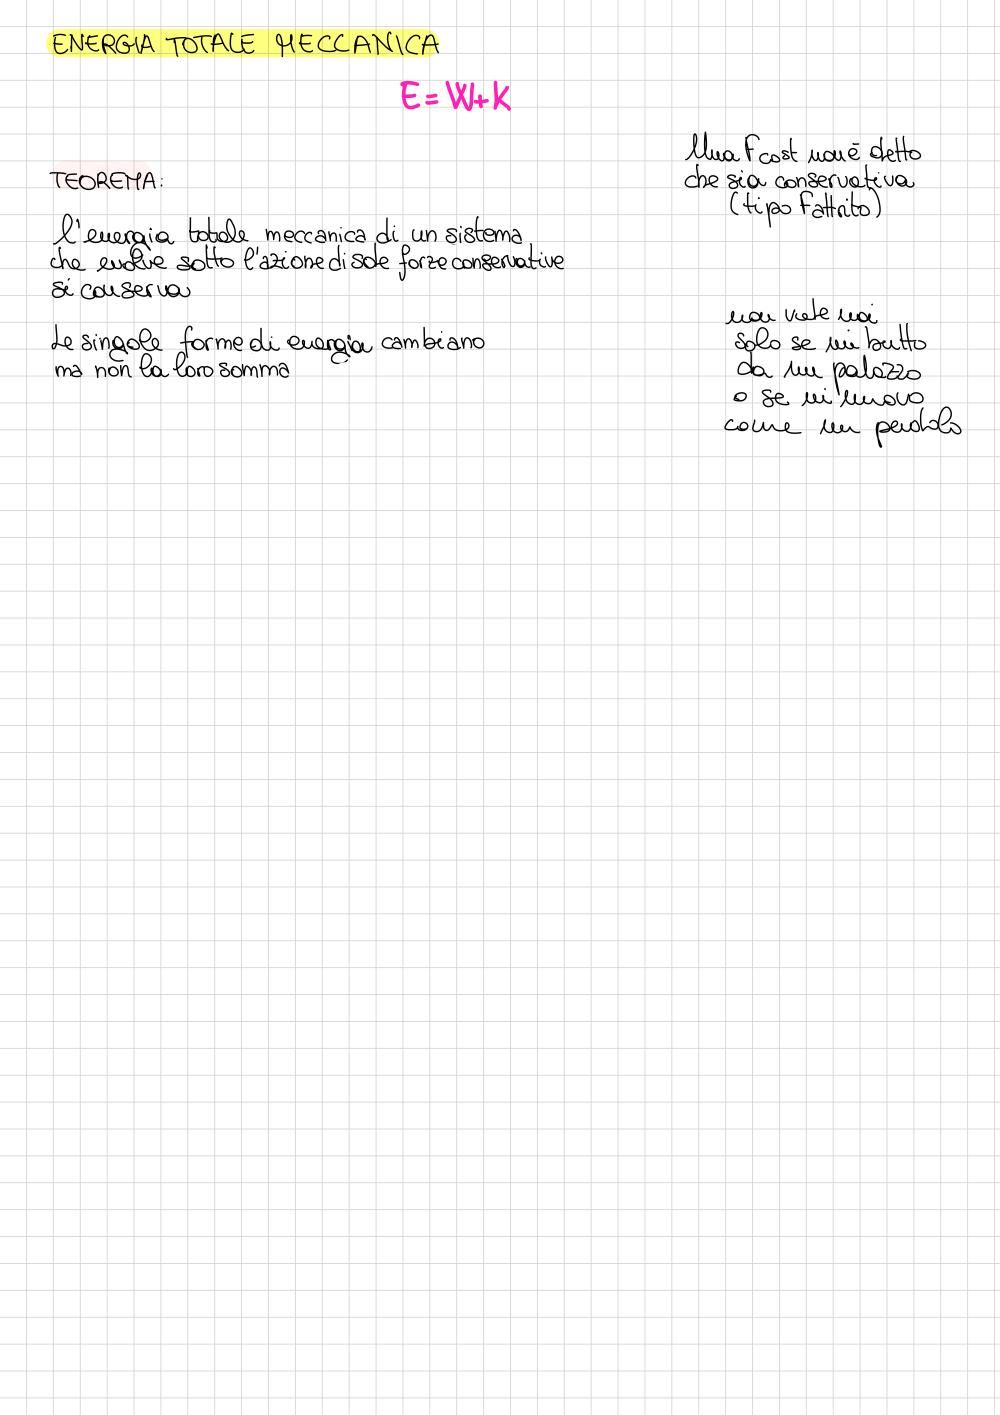 ENERGIA TOTALE MECCANICA
E = W + K
Una F cost non è detto
che sia conservativa
(tipo Fattrito)
TEOREMA:
l'energia totale meccanica di un sistema
che evolve sotto l'azione di sole forze conservative
si conserva
Le singole forme di energia cambiano
ma non la loro somma
non vale
solo se mi butto
da un palazzo
o se mi muovo
come un pendolo